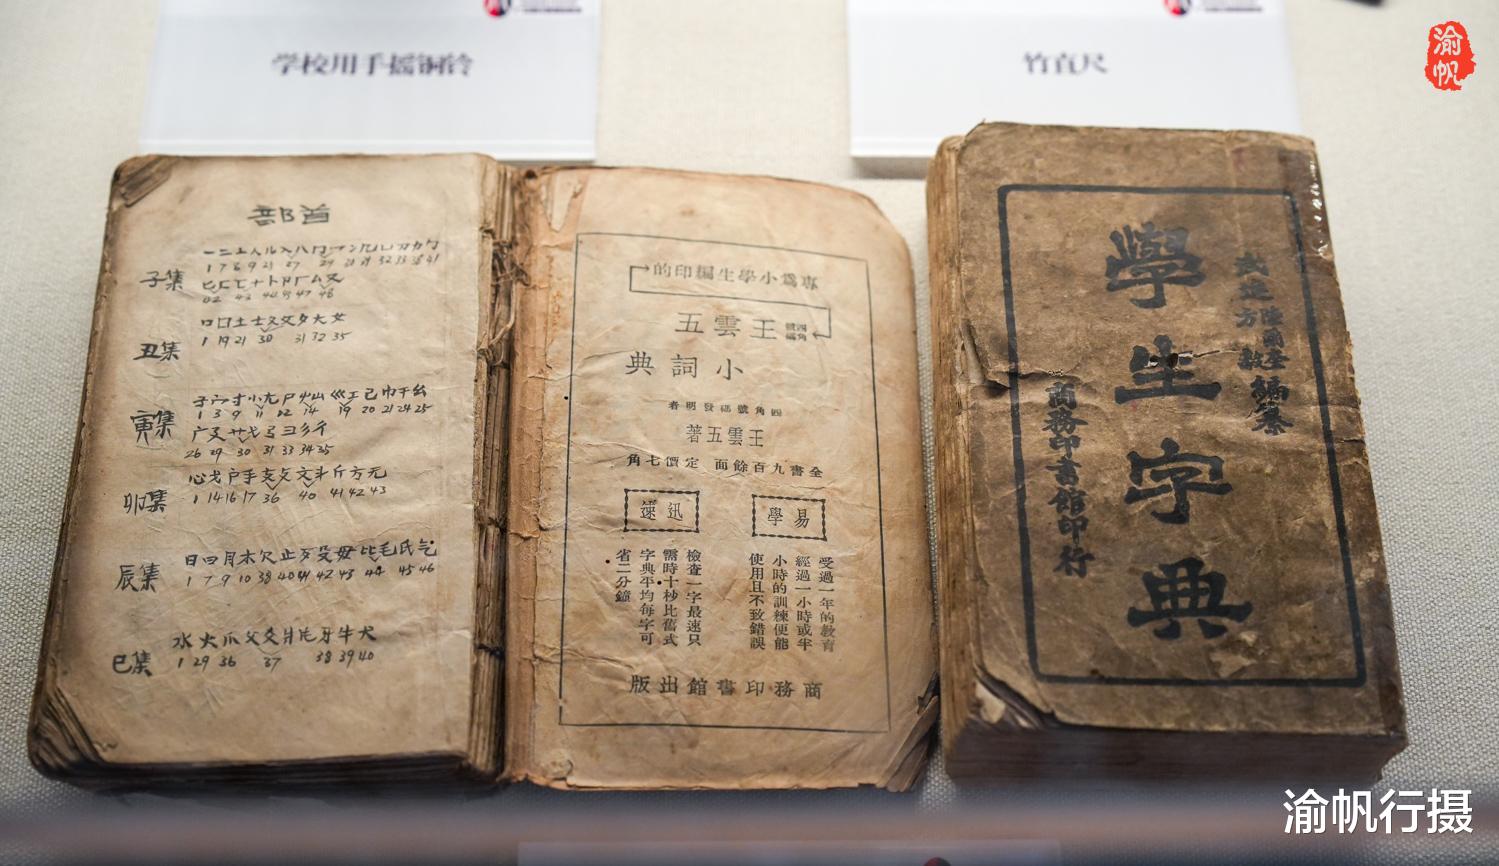 学校用手摇铜铃
竹直尺
渝
帆
部首
子集
一二亠人儿入八冂冖冫几凵刀力勹
匕匚匸十卜卩厂厶又
丑集
口囗土士夂夊夕大女
1 19 21 30 31 32 35
寅集
子宀寸小尢尸屮山巛工己巾干幺
1 3 9 11 12 14 19 20 21 24 25
广廴廾弋弓彐彡彳
26 29 30 31 33 34 35
卯集
心戈户手支攴文斗斤方无
1 14 16 17 36 40 41 42 43
辰集
日曰月木欠止歹殳毋比毛氏气
1 7 9 10 38 40 41 42 43 44 45 46
巳集
水火爪父爻爿片牙牛犬
1 29 36 37 38 39 40
專爲小學生編印的
四角號碼
王雲五
小詞典
四角號碼發明者
王雲五著
全書九百餘面 定價七角
易學
受過一年的教育
經過一小時或半
小時的訓練便能
使用且不致錯誤
迅速
檢查一字最速只
需時十秒比舊式
字典平均每字可
省二分鐘
商務印書館出版
武進
陸爾奎
方毅
編纂
學生字典
商務印書館印行
渝帆行摄